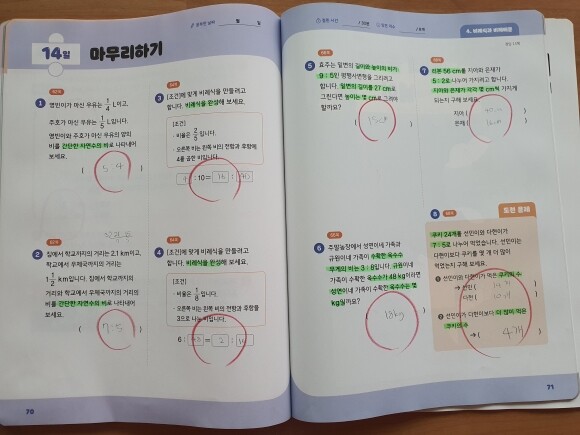 공부한 날짜 월 일
14일 마무리하기
1
영민이가 마신 우유는 1/4 L이고,
주호가 마신 우유는 1/5 L입니다.
영민이와 주호가 마신 우유의 양의
비를 간단한 자연수의 비로 나타내어
보세요.
( 5:4 )
2
집에서 학교까지의 거리는 2.1 km이고,
학교에서 우체국까지의 거리는
1 1/2 km입니다. 집에서 학교까지의
거리와 학교에서 우체국까지의 거리의
비를 간단한 자연수의 비로 나타내어
보세요.
( 7:5 )
3
[조건]에 맞게 비례식을 만들려고
합니다. 비례식을 완성해 보세요.
[조건]
· 비율은 2/5 입니다.
· 오른쪽 비는 왼쪽 비의 전항과 후항에
4를 곱한 비입니다.
4 :10= 16 : 40
4
[조건]에 맞게 비례식을 만들려고
합니다. 비례식을 완성해 보세요.
[조건]
· 비율은 1/8 입니다.
· 오른쪽 비는 왼쪽 비의 전항과 후항을
3으로 나눈 비입니다.
6: 48 = 2 : 16
70
4. 비례식과 비례배분
5
효주는 밑변의 길이와 높이의 비가
9 : 5인 평행사변형을 그리려고
합니다. 밑변의 길이를 27 cm로
그린다면 높이는 몇 cm로 그려야
할까요?
( 15cm )
6
주말농장에서 성연이네 가족과
규원이네 가족이 수확한 옥수수
무게의 비는 3 : 8입니다. 규원이네
가족이 수확한 옥수수가 48 kg이라면
성연이네 가족이 수확한 옥수수는 몇
kg일까요?
( 18kg )
7
리본 56 cm를 지아와 은채가
5 : 2로 나누어 가지려고 합니다.
지아와 은채가 각각 몇 cm씩 가지게
되는지 구해 보세요.
지아 ( 40cm )
은채 ( 16cm )
도전 문제
8
쿠키 24개를 선민이와 다현이가
7 : 5로 나누어 먹었습니다. 선민이는
다현이보다 쿠키를 몇 개 더 많이
먹었는지 구해 보세요.
1 선민이와 다현이가 먹은 쿠키의 수
→ 선민 ( 14개 )
다현 ( )
2 선민이가 다현이보다 더 많이 먹은
쿠키의 수
→ ( 4개 )
71